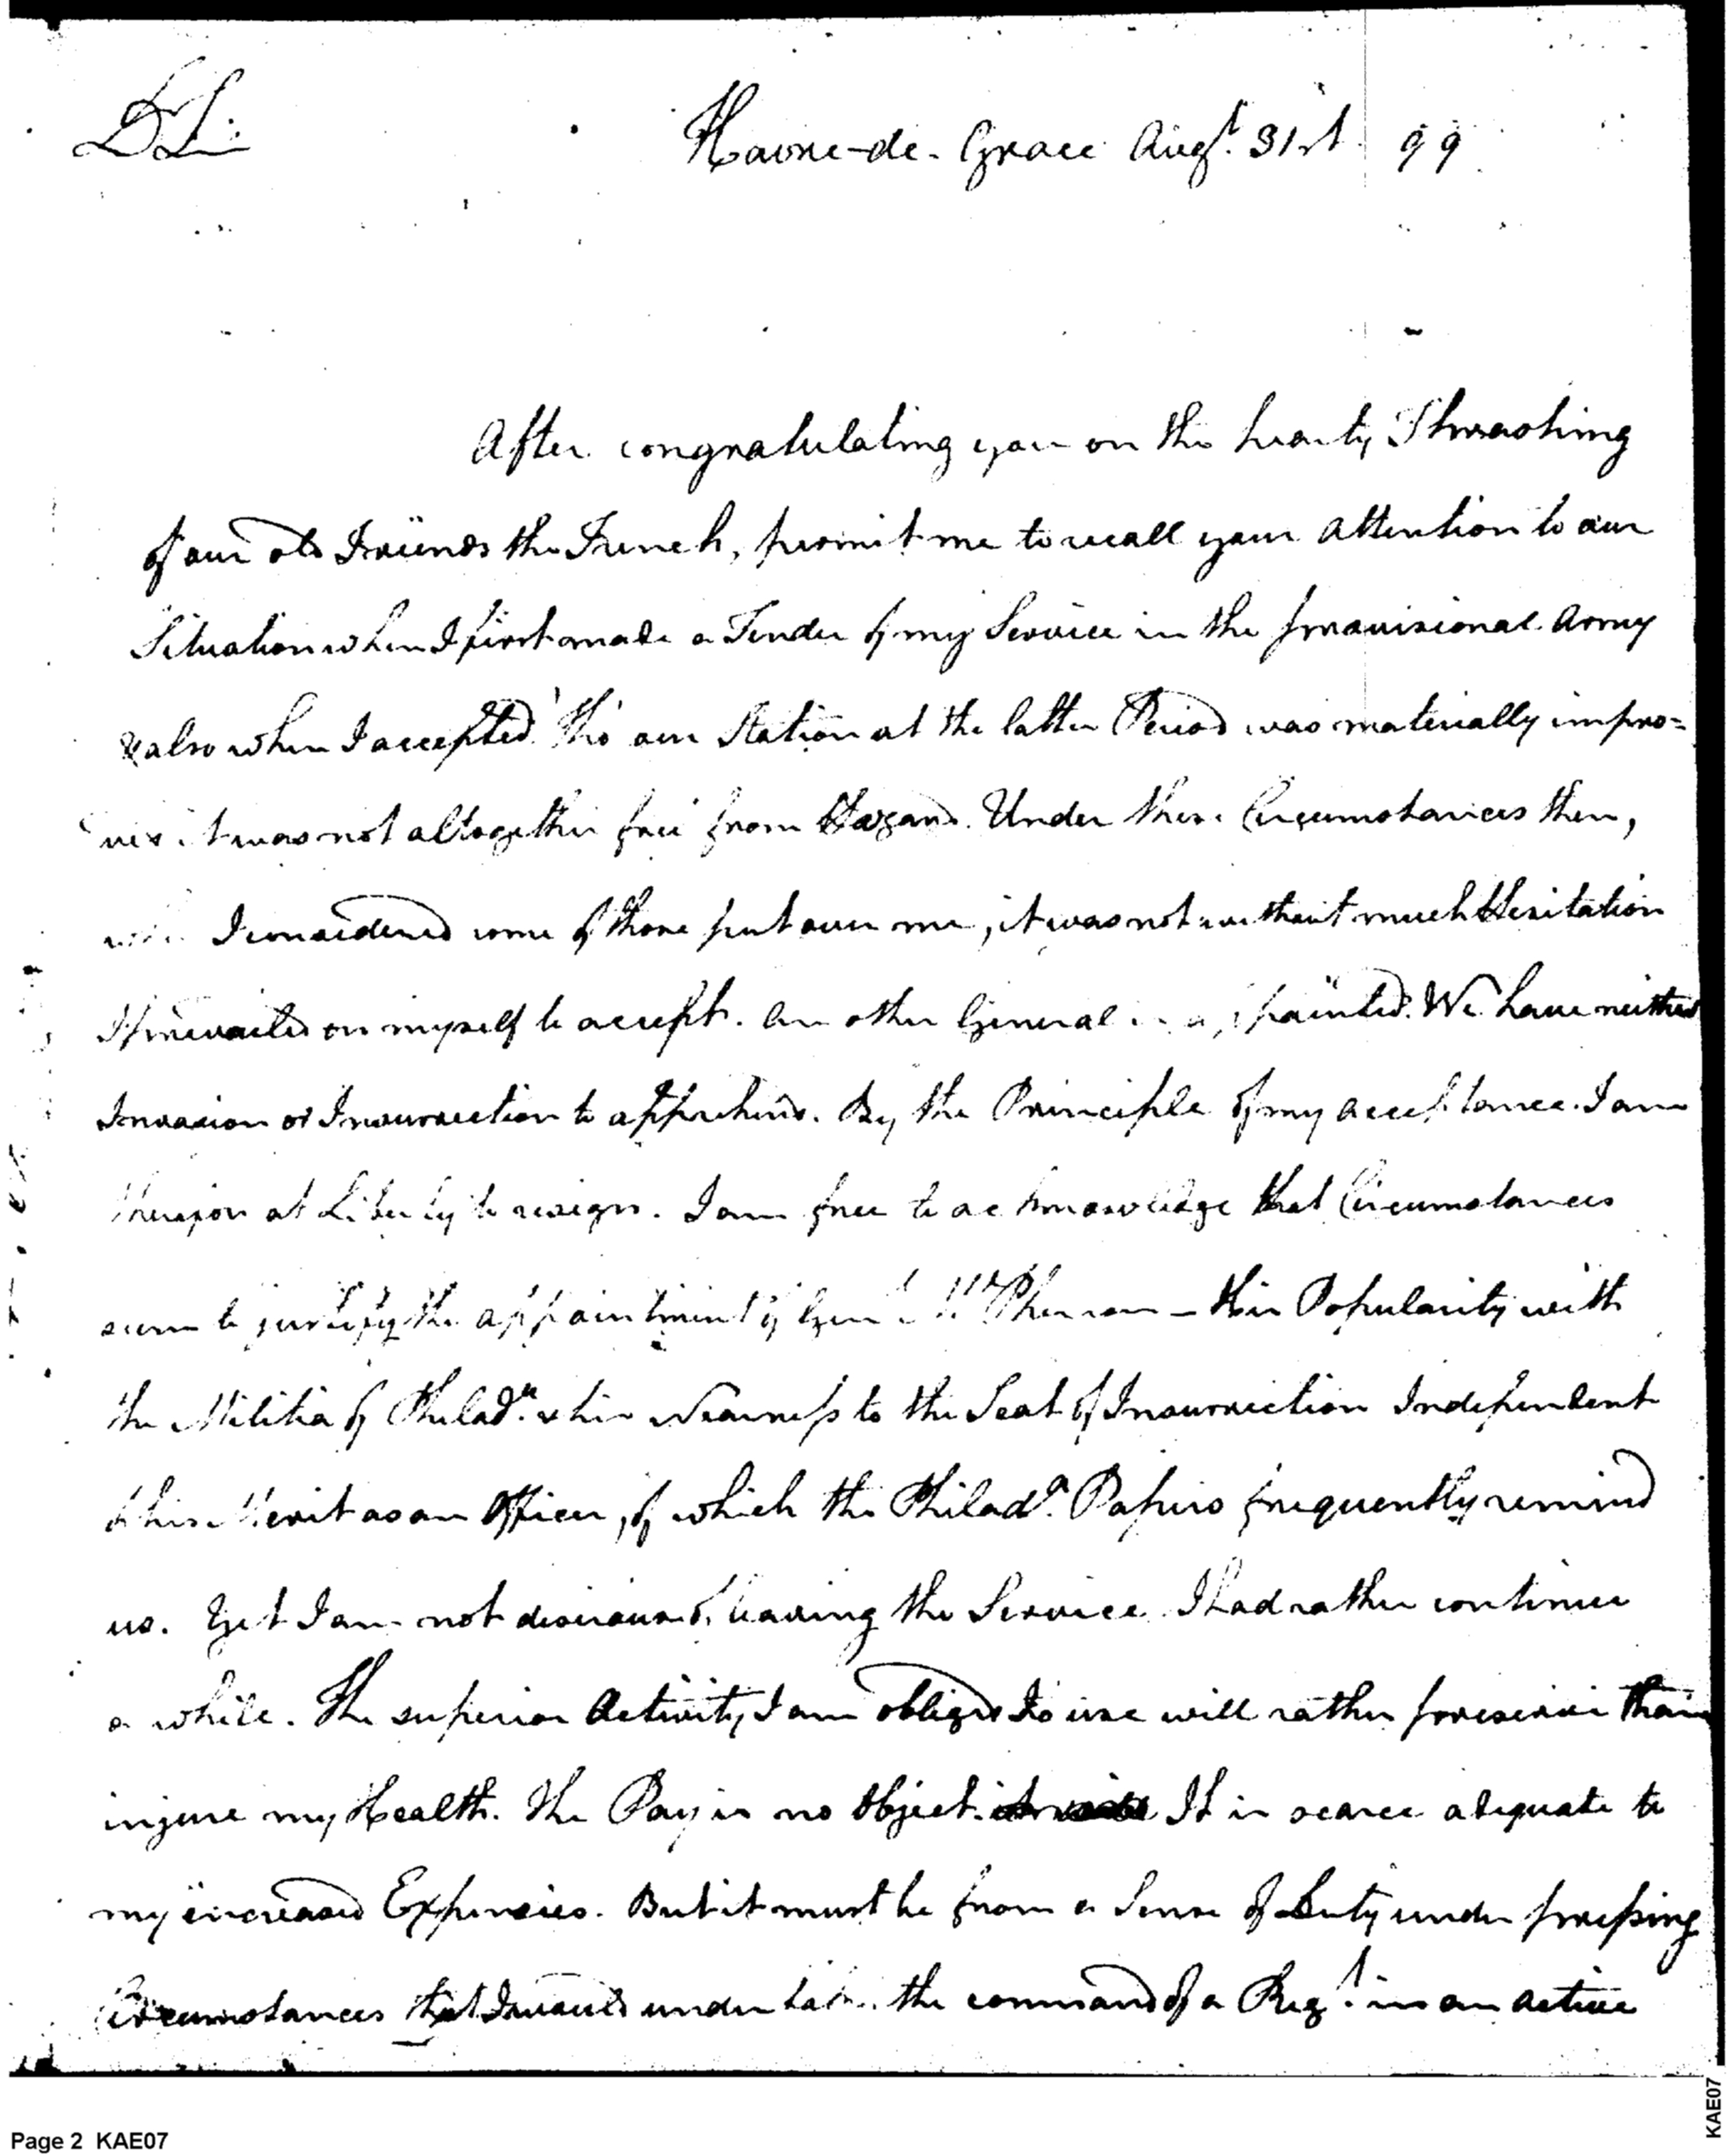 Dr Sir
Havre-de-Grace Augt. 31st 99
After congratulating you on the hearty Thrashing
of our old Friends the French, permit me to recall your Attention to our
Situation when I first made a Tender of my Service in the provisional Army
& also when I accepted. Tho' our Station at the latter Period was materially impro=
ved it was not altogether free from Hazard. Under these Circumstances then,
I considered some of those put over me, it was not without much Hesitation
I prevailed on myself to accept. An other General is appointed. We have neither
Invasion or Insurrection to apprehend. By the Principle of my acceptance I am
therefore at Liberty to resign. I am free to acknowledge that Circumstances
seem to justify the appointment of Genl McPherson – His Popularity with
the Militia of Philada. & his Nearness to the Seat of Insurrection Independent
of his Merit as an Officer, of which the Philada. Papers frequently remind
us. Yet I am not desirous of leaving the Service I had rather continue
a while. The superior Activity I am obliged to use will rather preserve than
injure my Health. The Pay is no Object. It is scarce adequate to
my increased Expencies. But it must be from a Sense of Duty under pressing
Circumstances that I would undertake the command of a Regt. in an active
Page 2 KAE07
KAE07